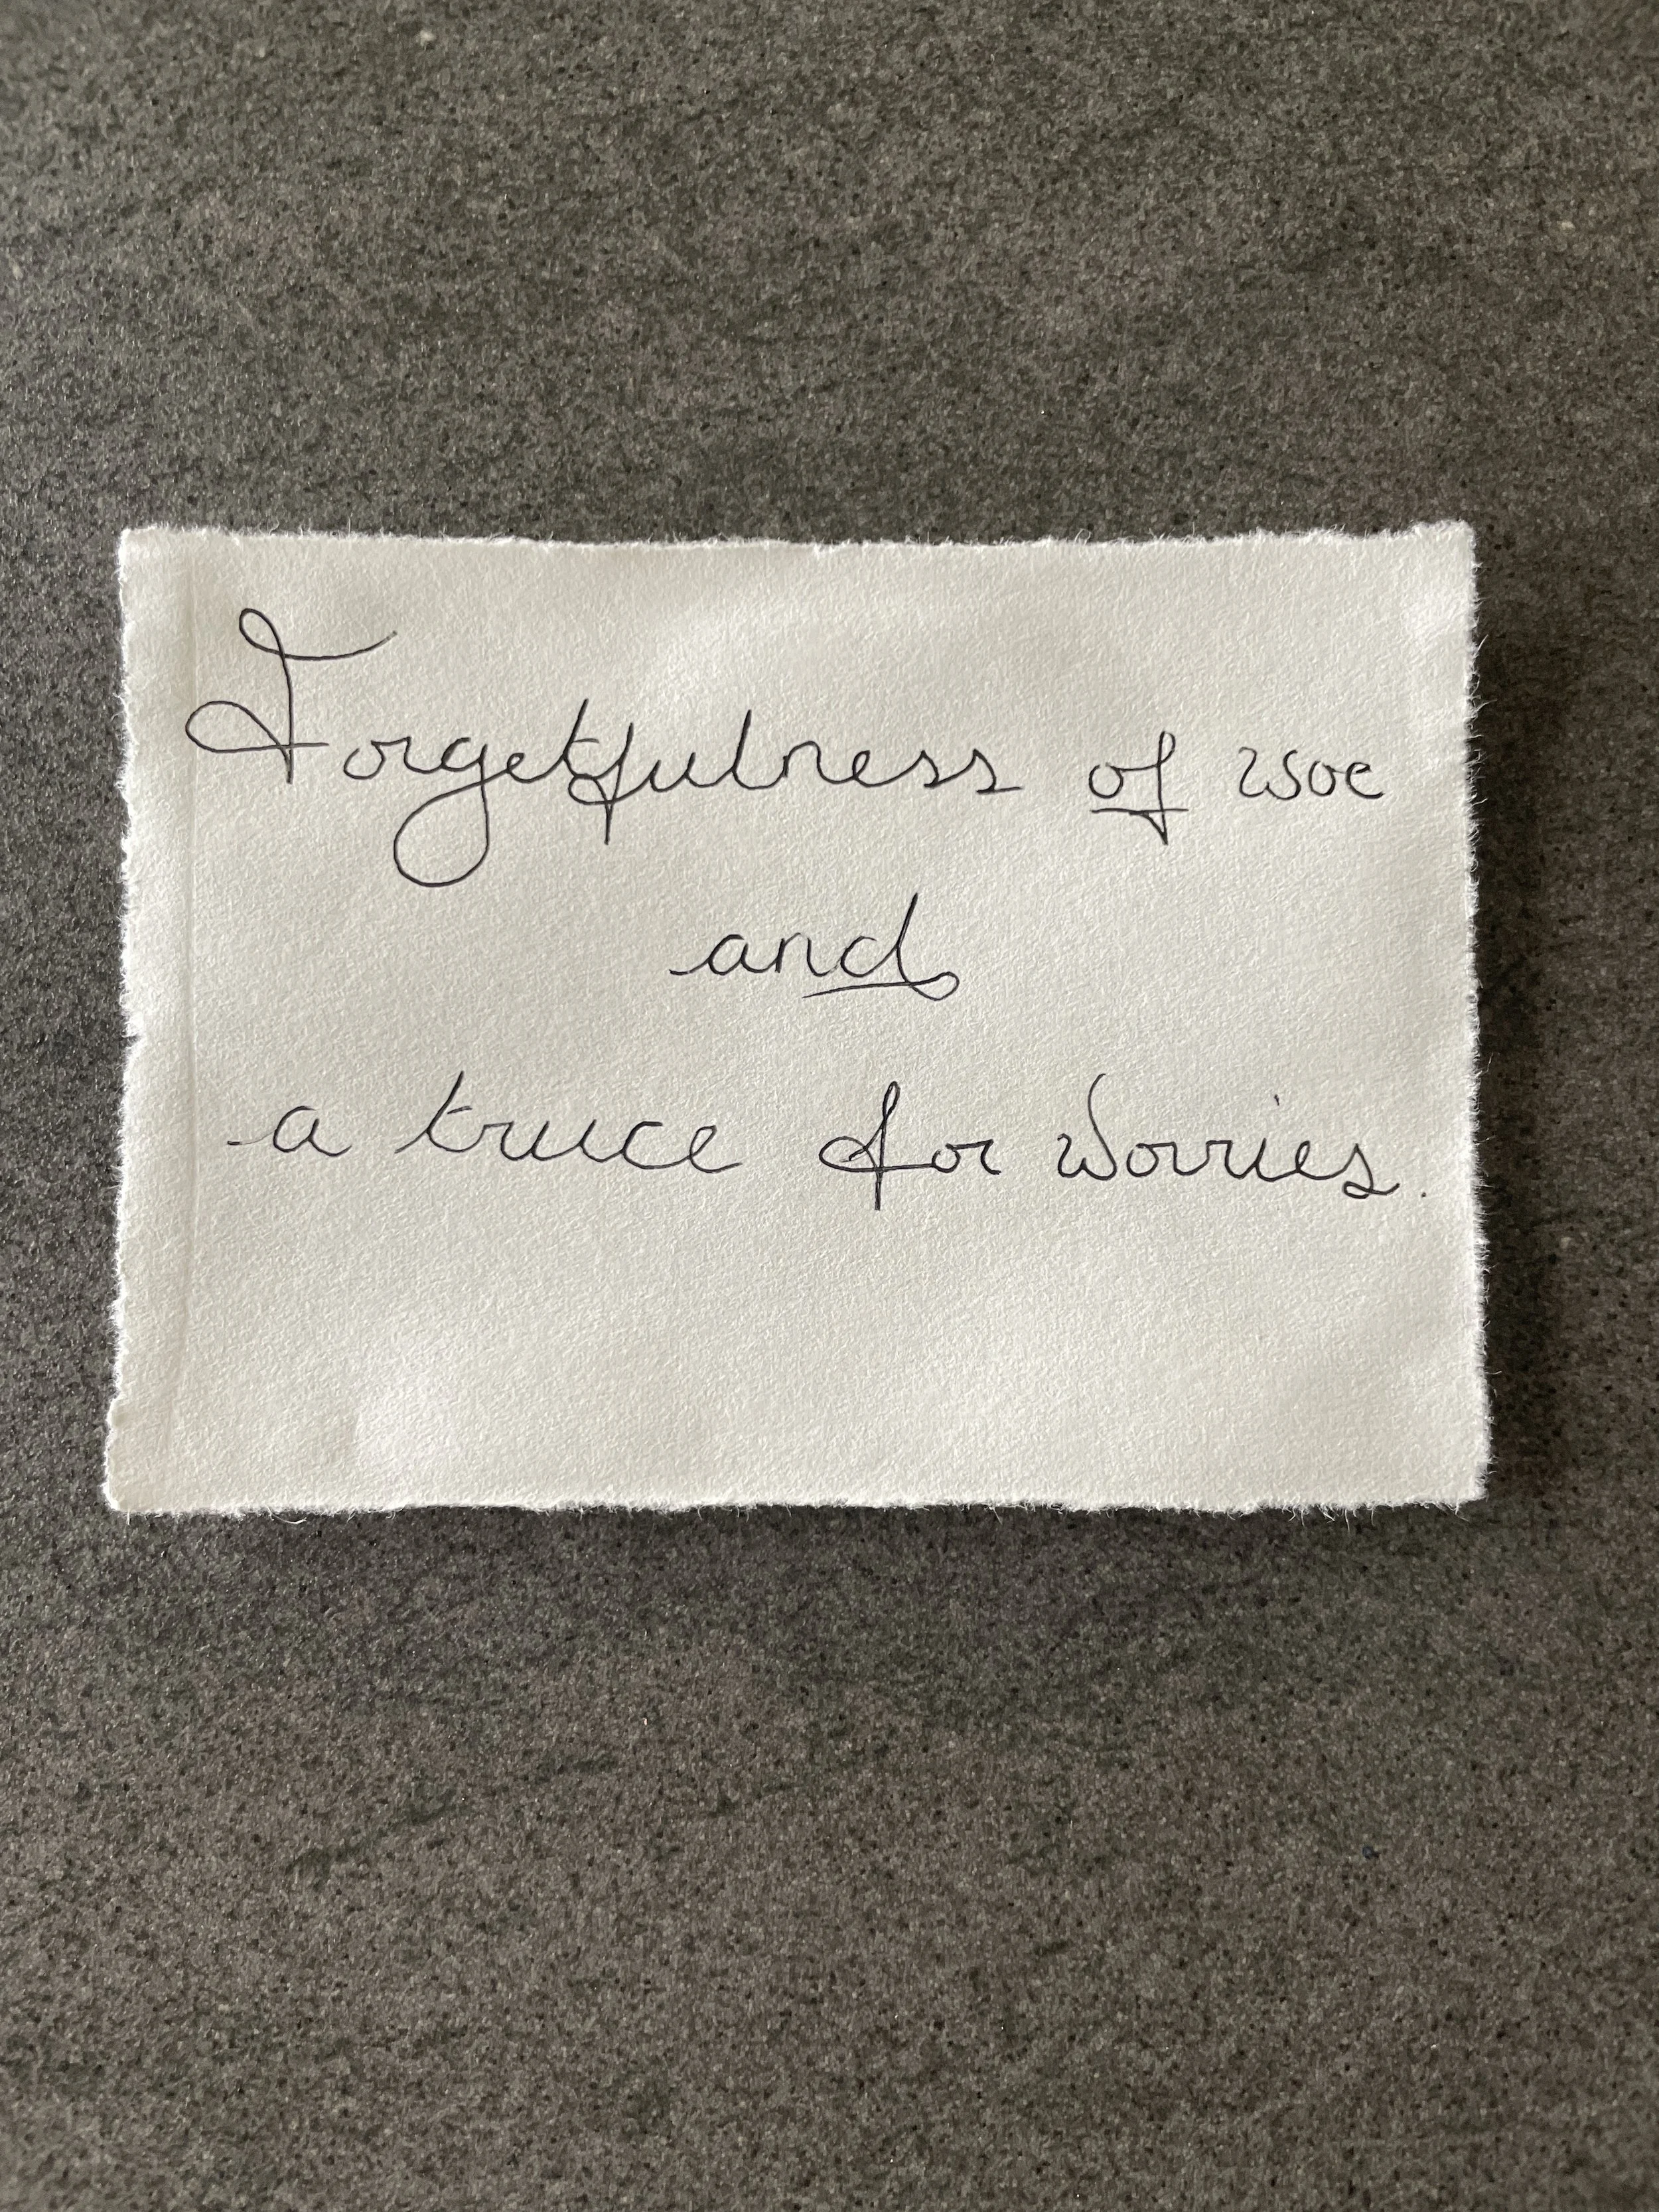 Forgetfulness of woe
and
a truce for worries.